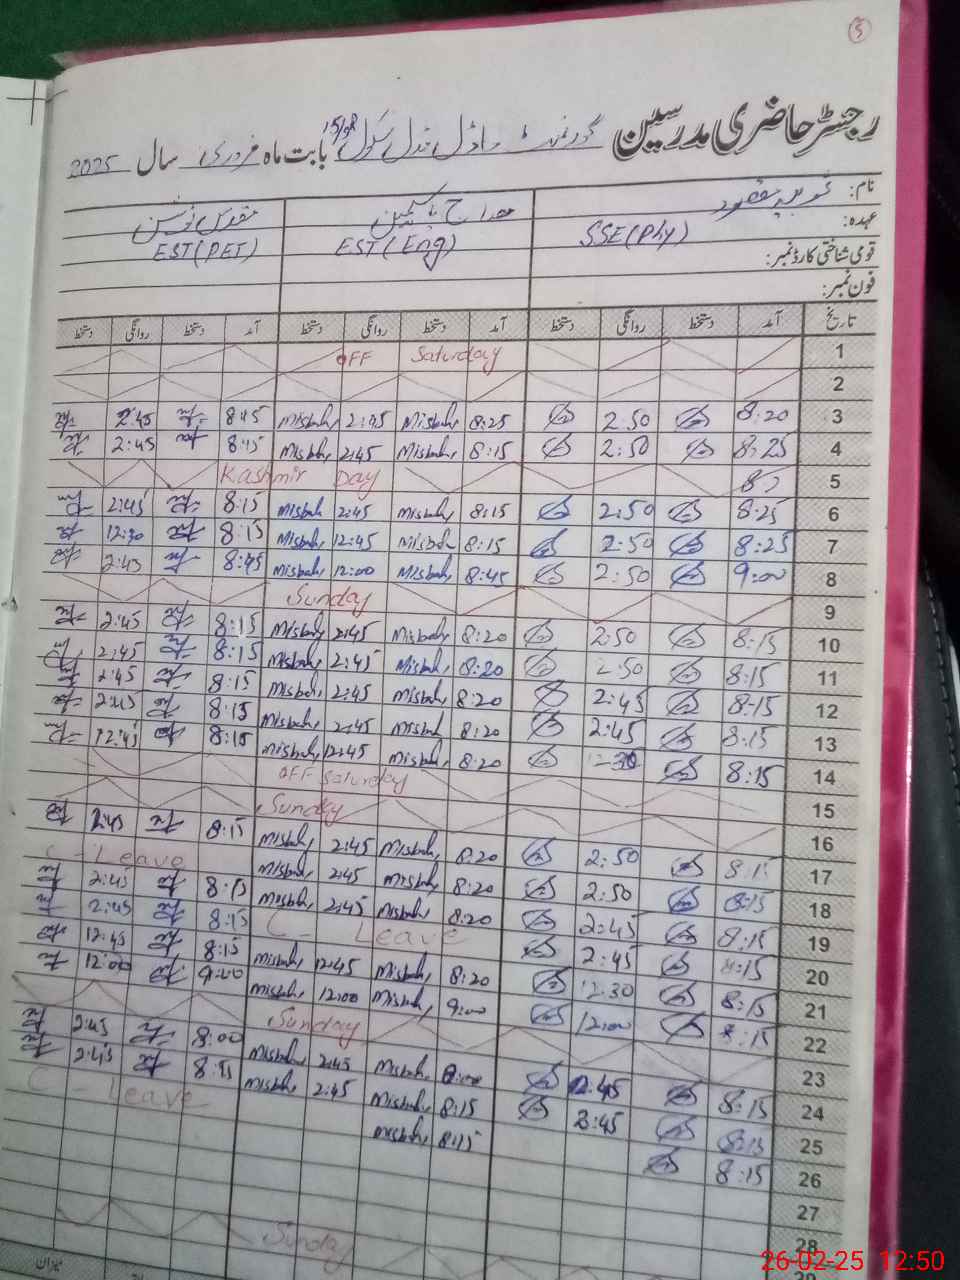 5
رجسٹر حاضری مدرسین گورنمنٹ ماڈل مڈل سکول بابت ماہ فروری سال 2025
نام:
عہدہ: SSE(Phy) EST(Eng) EST(PET)
قومی شناختی کارڈ نمبر:
فون نمبر:
تاریخ آمد دستخط روانگی دستخط آمد دستخط روانگی دستخط آمد دستخط روانگی دستخط
1 OFF Saturday
2
3 8:20 2:50 8:25 Misbah 2:45 Misbah 8:15 2:45
4 8:25 2:50 8:15 Misbah 2:45 Misbah 8:15 2:45
5 Kashmir Day
6 8:25 2:50 8:15 Misbah 2:45 Misbah 8:15 2:45
7 8:25 2:50 8:15 Misbah 12:45 Misbah 8:15 12:30
8 9:00 2:50 8:45 Misbah 12:00 Misbah 8:45 2:45
9 Sunday
10 8:15 2:50 8:20 Misbah 2:45 Misbah 8:15 2:45
11 8:15 2:50 8:20 Misbah 2:45 Misbah 8:15 2:45
12 8:15 2:45 8:20 Misbah 2:45 Misbah 8:15 2:45
13 8:15 2:45 8:20 Misbah 2:45 Misbah 8:15 2:45
14 8:15 12:30 8:20 Misbah 12:45 Misbah 8:15 12:45
15 OFF Saturday
16 Sunday
17 8:15 2:50 8:20 Misbah 2:45 Misbah 8:15 2:45
18 8:15 2:50 8:20 Misbah 2:45 Misbah C-Leave
19 8:15 2:45 8:20 Misbah 2:45 Misbah 8:15 2:45
20 8:15 2:45 C-Leave 8:15 2:45
21 8:15 12:30 8:20 Misbah 12:45 Misbah 8:15 12:45
22 8:15 12:00 9:00 Misbah 12:00 Misbah 9:00 12:00
23 Sunday
24 8:15 2:45 8:00 Misbah 2:45 Misbah 8:00 2:45
25 8:15 2:45 8:15 Misbah 2:45 Misbah 8:15 2:45
26 8:15 8:15 Misbah C Leave
27
28
29
Sunday
میزان
26-02-25 12:50